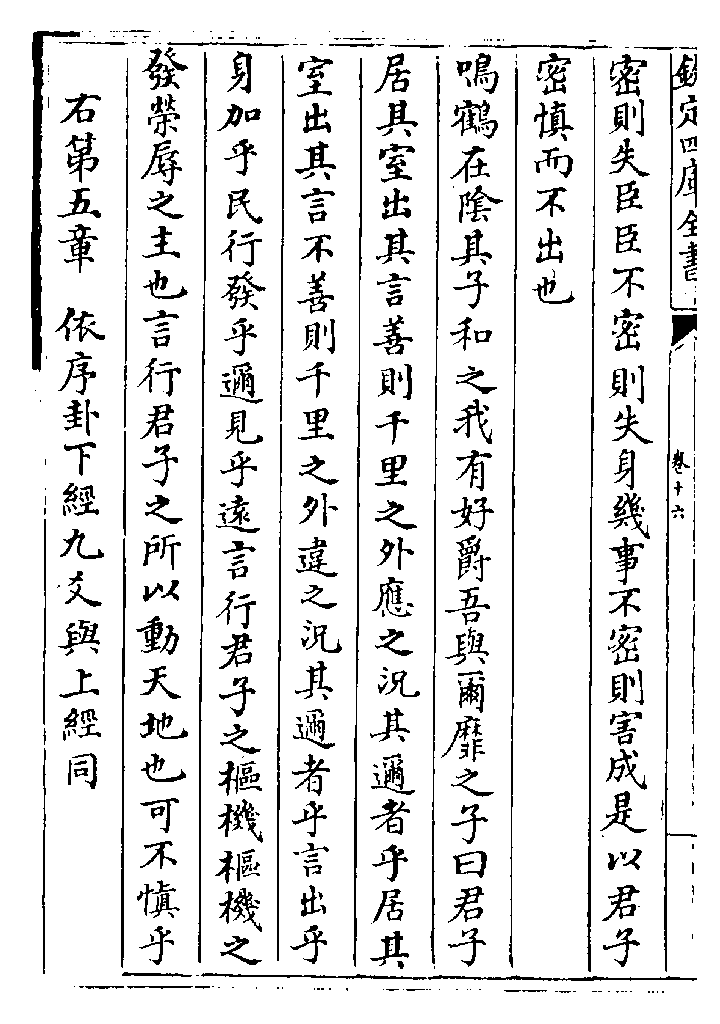 欽定四庫全書
卷十六
密則失臣臣不密則失身幾事不密則害成是以君子
密慎而不出也
鳴鶴在陰其子和之我有好爵吾與爾靡之子曰君子
居其室出其言善則千里之外應之況其邇者乎居其
室出其言不善則千里之外違之況其邇者乎言出乎
身加乎民行發乎邇見乎遠言行君子之樞機樞機之
發榮辱之主也言行君子之所以動天地也可不慎乎
右第五章　依序卦下經九爻與上經同